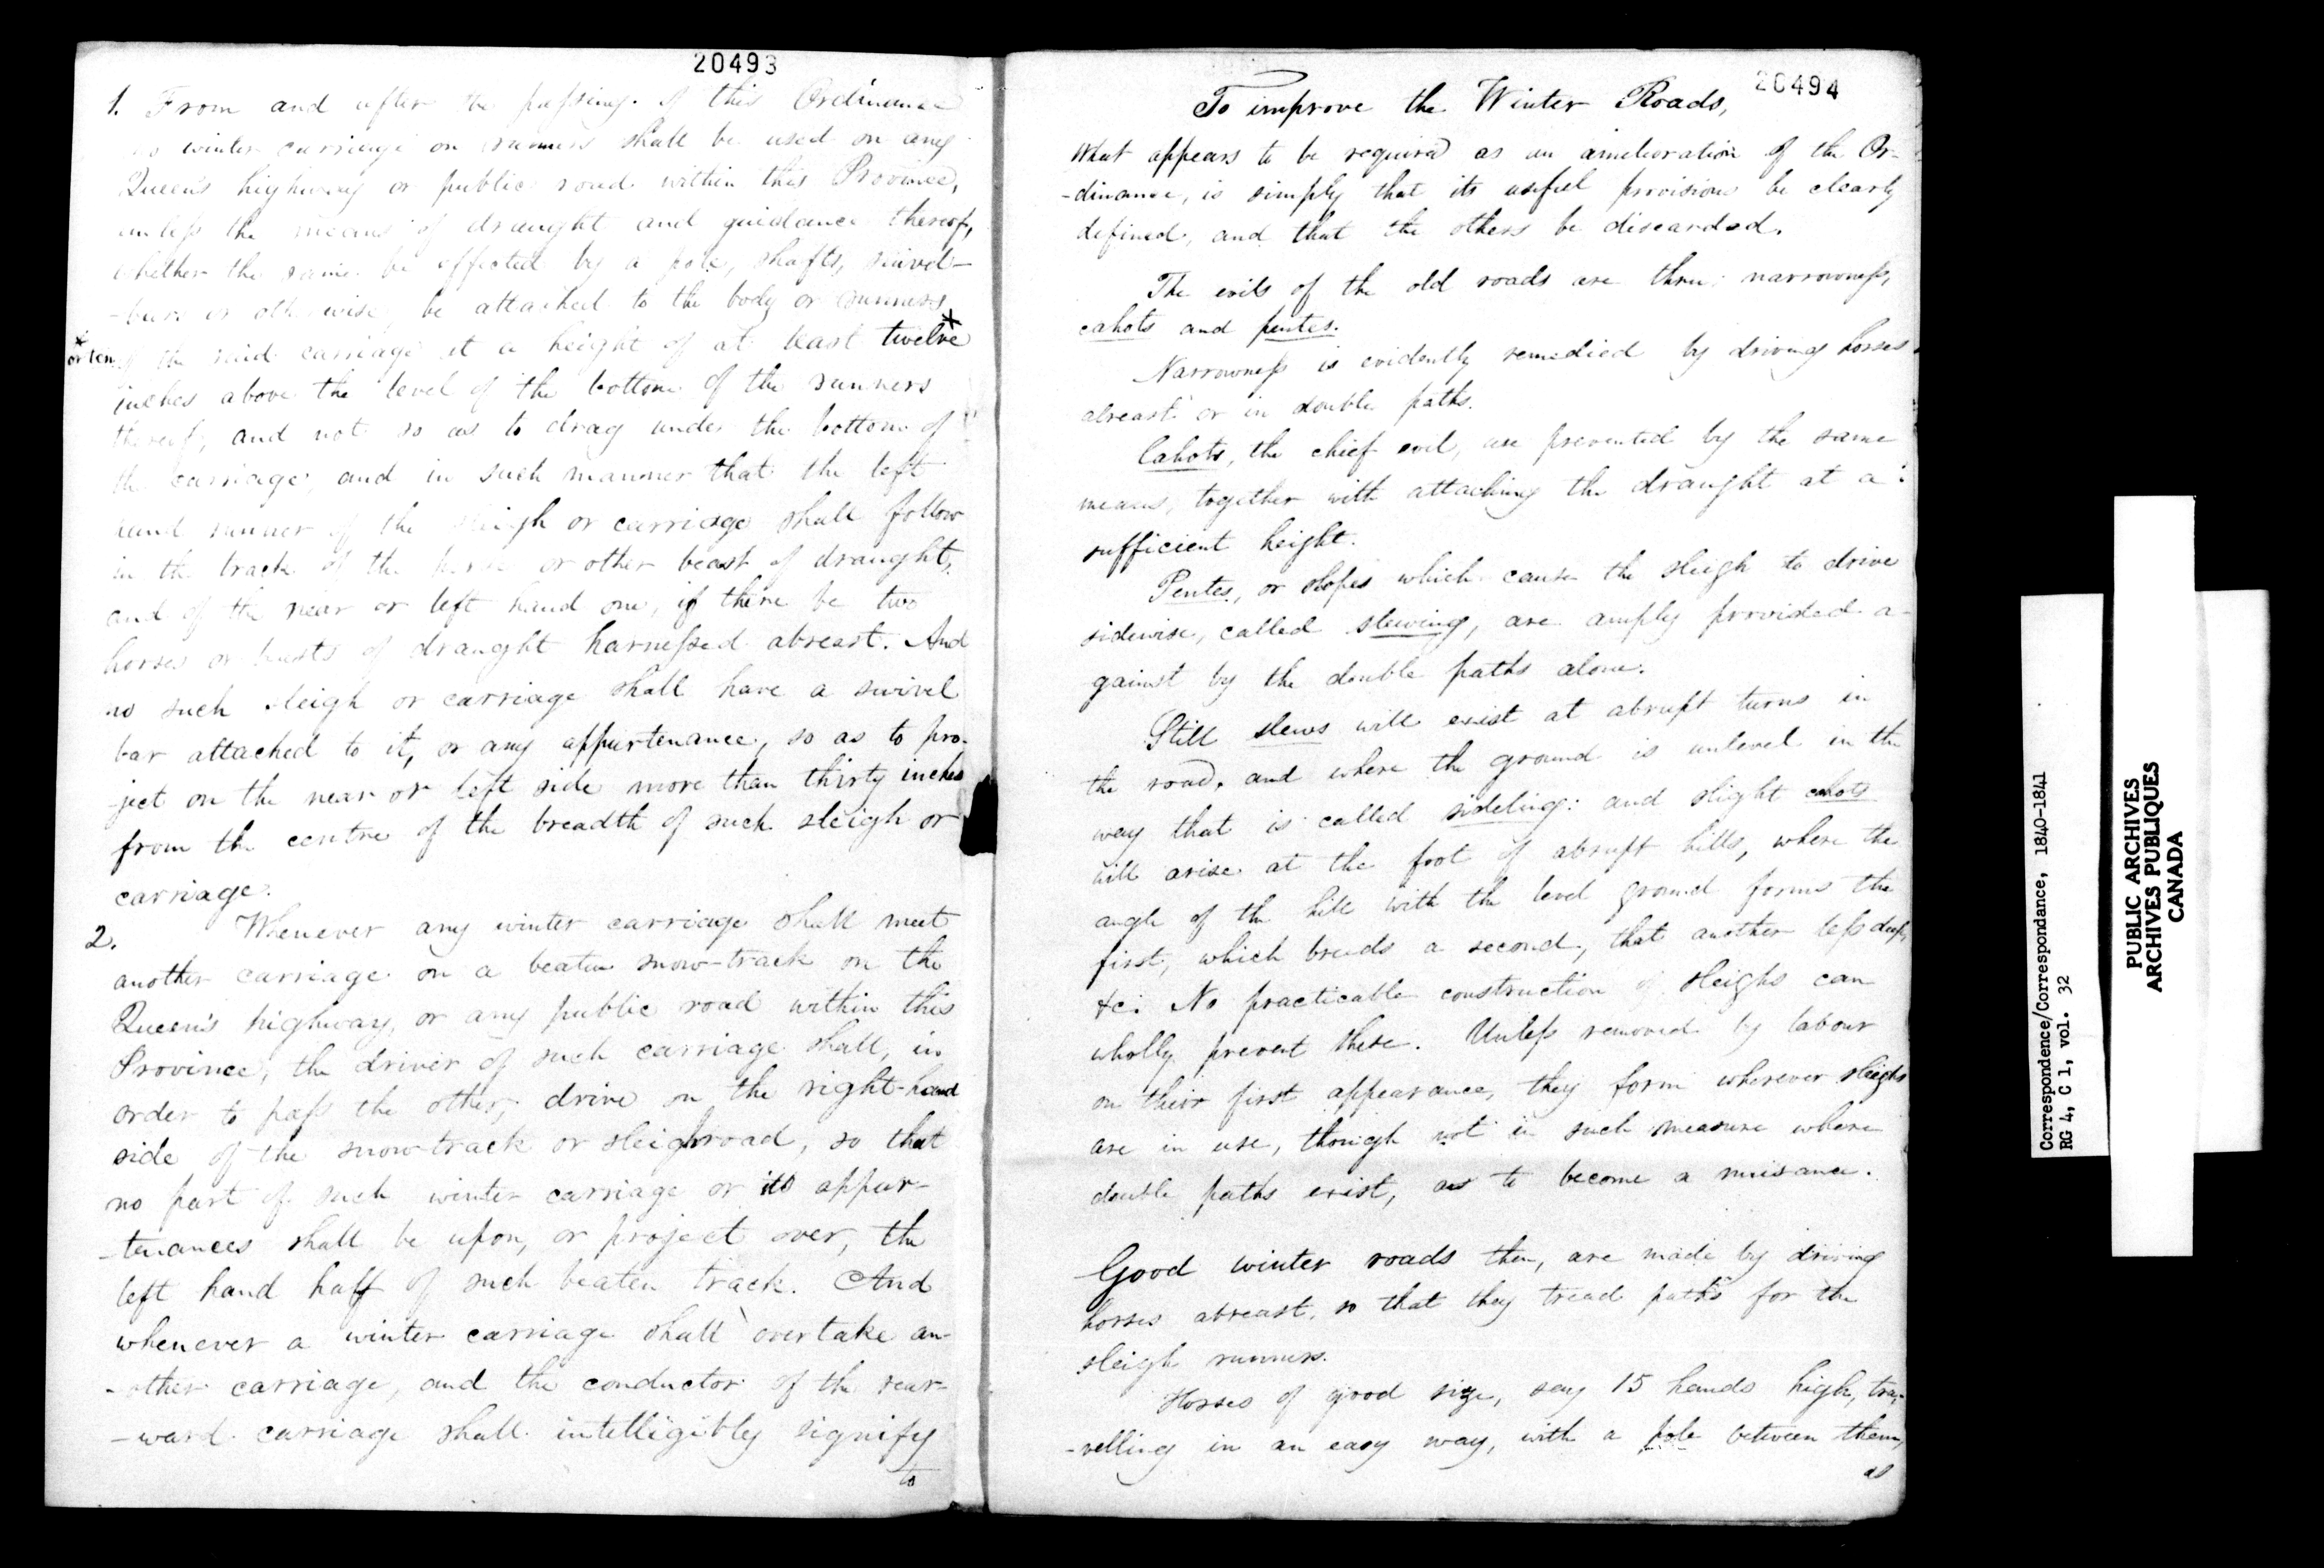 20493
1. From and after the passing of this Ordinance
no winter carriage on runners shall be used on any
Queen's highway or public road within this Province,
unless the means of draught and guidance thereof,
whether the same be effected by a pole, shafts, swivel-
-bars or otherwise, be attached to the body or runners
* or ten
of the said carriage at a height of at least twelve *
inches above the level of the bottom of the runners
thereof, and not so as to drag under the bottom of
the carriage, and in such manner that the left
hand runner of the sleigh or carriage shall follow
in the track of the horse or other beast of draught,
and of the near or left hand one, if there be two
horses or beasts of draught harnessed abreast. And
no such sleigh or carriage shall have a swivel
bar attached to it, or any appurtenance, so as to pro-
-ject on the near or left side more than thirty inches
from the centre of the breadth of such sleigh or
carriage.
2. Whenever any winter carriage shall meet
another carriage on a beaten snow-track on the
Queen's highway, or any public road within this
Province, the driver of such carriage shall, in
order to pass the other, drive on the right-hand
side of the snow-track or sleighroad, so that
no part of such winter carriage or its appur-
-tenances shall be upon, or project over, the
left hand half of such beaten track. And
whenever a winter carriage shall overtake an-
-other carriage, and the conductor of the rear-
-ward carriage shall intelligibly signify
to
20494
To improve the Winter Roads,
What appears to be required as an amelioration of the Or-
-dinance, is simply that its useful provisions be clearly
defined, and that the others be discarded.
The evils of the old roads are three: narrowness,
cahots and pentes.
Narrowness is evidently remedied by driving horses
abreast or in double paths.
Cahots, the chief evil, are prevented by the same
means, together with attaching the draught at a
sufficient height.
Pentes, or slopes which cause the sleigh to drive
sidewise, called slewing, are amply provided a-
gainst by the double paths alone.
Still slews will exist at abrupt turns in
the road, and where the ground is unlevel in the
way that is called sideling: and slight cahots
will arise at the foot of abrupt hills, where the
angle of the hill with the level ground forms the
first, which breeds a second, that another less deep,
&c: No practicable construction of sleighs can
wholly prevent these. Unless removed by labour
on their first appearance, they form wherever sleighs
are in use, though not in such measure where
double paths exist, as to become a nuisance.
Good winter roads then, are made by driving
horses abreast, so that they tread paths for the
sleigh runners.
Horses of good size, say 15 hands high, tra-
-velling in an easy way, with a pole between them,
as
Correspondence/Correspondance, 1840-1841
RG 4, C 1, vol. 32
PUBLIC ARCHIVES
ARCHIVES PUBLIQUES
CANADA